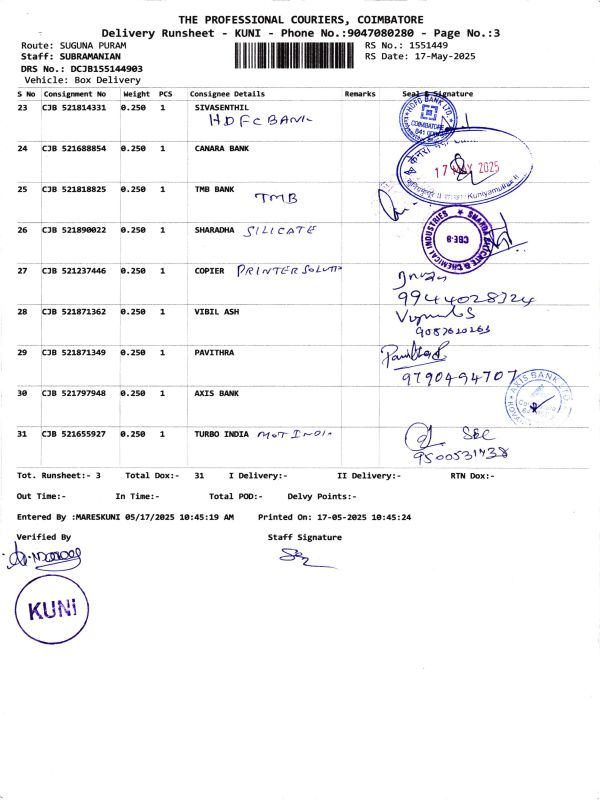 THE PROFESSIONAL COURIERS, COIMBATORE
Delivery Runsheet - KUNI - Phone No.:9047080280 - Page No.:3
Route: SUGUNA PURAM RS No.: 1551449
Staff: SUBRAMANIAN RS Date: 17-May-2025
DRS No.: DCJB155144903
Vehicle: Box Delivery
S No Consignment No Weight PCS Consignee Details Remarks Seal & Signature
23 CJB 521814331 0.250 1 SIVASENTHIL
HDFC BANK
HDFC BANK LTD.
COIMBATORE
24 CJB 521688854 0.250 1 CANARA BANK
17 MAY 2025
Kuniyamuthur
25 CJB 521818825 0.250 1 TMB BANK
TMB
26 CJB 521890022 0.250 1 SHARADHA SILICATE
SHARDA SILICATE & CHEMICAL INDUSTRIES
CBE-8
27 CJB 521237446 0.250 1 COPIER PRINTER SOLUTI
9944028324
28 CJB 521871362 0.250 1 VIBIL ASH
29 CJB 521871349 0.250 1 PAVITHRA
9790494707
30 CJB 521797948 0.250 1 AXIS BANK
AXIS BANK LTD
31 CJB 521655927 0.250 1 TURBO INDIA
SEC
9500531738
Tot. Runsheet:- 3 Total Dox:- 31 I Delivery:- II Delivery:- RTN Dox:-
Out Time:- In Time:- Total POD:- Delvy Points:-
Entered By :MARESKUNI 05/17/2025 10:45:19 AM Printed On: 17-05-2025 10:45:24
Verified By Staff Signature
KUNI